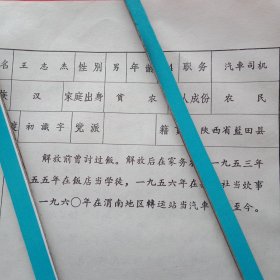 名 王志杰 性别 男 年龄 4 职务 汽车司机
族 汉 家庭出身 贫农 人成份 农民
初识字 党派 籍 陕西省蓝田县
解放前曾讨过饭。解放后在家务 一九五三年
五五年在饭店当学徒，一九五六年在 社当炊事
一九六〇年在渭南地区转运站当汽车 至今。